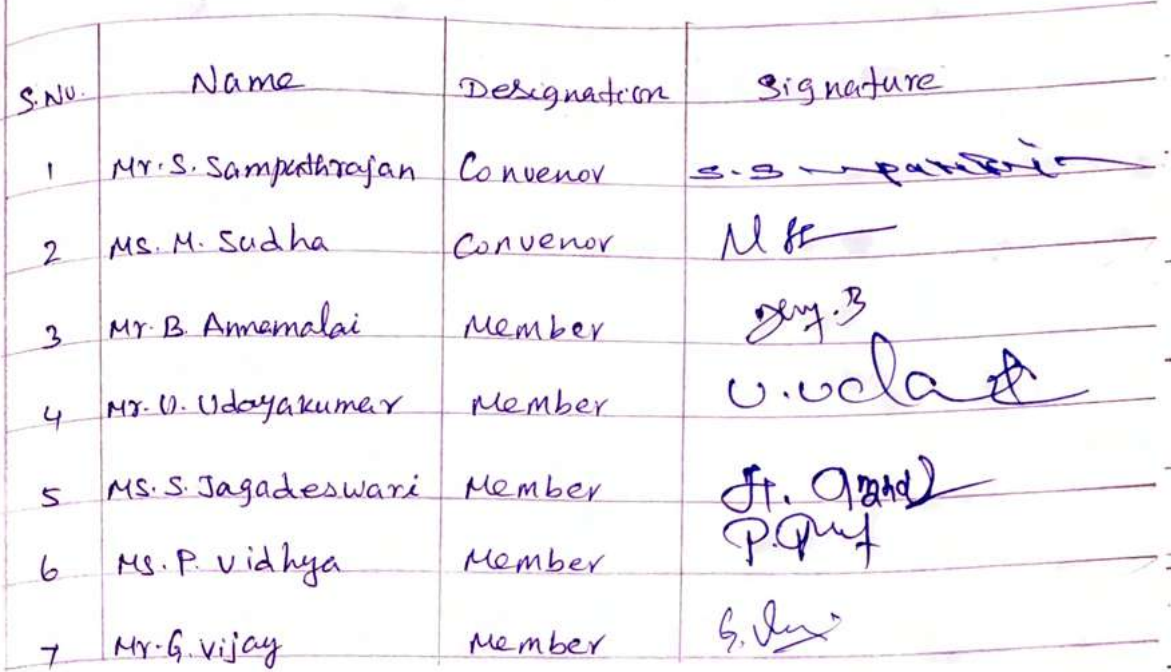 S.No. Name Designation Signature
1 Mr. S. Sampathrajan Convenor
2 Ms. M. Sudha Convenor
3 Mr. B. Annamalai Member
4 Mr. U. Udayakumar Member U.Uda
5 Ms. S. Jagadeswari Member
6 Ms. P. Vidhya Member
7 Mr. G. Vijay Member